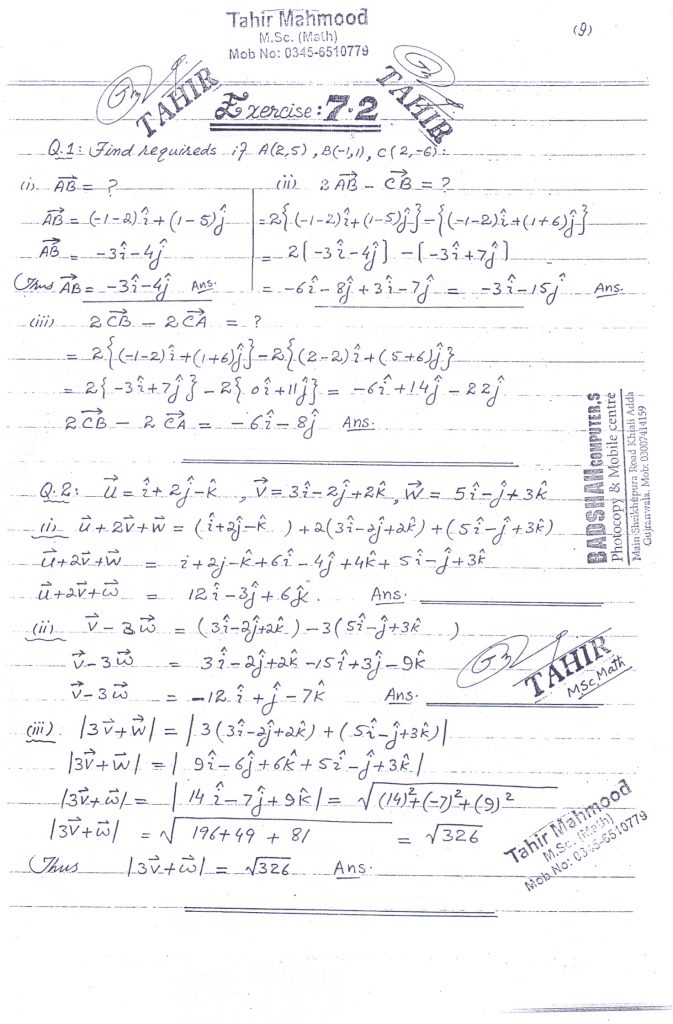 Tahir Mahmood
M.Sc. (Math)
Mob No: 0345-6510779
(9)
TAHIR
TAHIR
Exercise: 7.2
Q.1: Find requireds if A(2,5), B(-1,1), C(2,-6):
(i) AB⃗ = ?
AB⃗ = (-1-2)î+(1-5)ĵ
AB⃗ = -3î-4ĵ
Thus AB⃗ = -3î-4ĵ Ans.
(ii) 2AB⃗ - CB⃗ = ?
= 2{(-1-2)î+(1-5)ĵ}-{(-1-2)î+(1+6)ĵ}
= 2[-3î-4ĵ] - [-3î+7ĵ]
= -6î-8ĵ+3î-7ĵ = -3î-15ĵ Ans.
(iii) 2CB⃗ - 2CA⃗ = ?
= 2{(-1-2)î+(1+6)ĵ}-2{(2-2)î+(5+6)ĵ}
= 2{-3î+7ĵ}-2{0î+11ĵ} = -6î+14ĵ-22ĵ
2CB⃗ - 2CA⃗ = -6î-8ĵ Ans.
BADSHAH COMPUTER,S
Photocopy & Mobile centre
Main Sheikhupura Road Khiali Adda
Gujranwala. Mob: 03007414159
Q.2: u⃗ = î+2ĵ-k̂, v⃗ = 3î-2ĵ+2k̂, w⃗ = 5î-ĵ+3k̂
(i) u⃗+2v⃗+w⃗ = (î+2ĵ-k̂) + 2(3î-2ĵ+2k̂) + (5î-ĵ+3k̂)
u⃗+2v⃗+w⃗ = i+2j-k̂+6î-4ĵ+4k̂+5î-ĵ+3k̂
u⃗+2v⃗+w⃗ = 12î-3ĵ+6k̂. Ans.
(ii) v⃗-3w⃗ = (3î-2ĵ+2k̂)-3(5î-ĵ+3k̂)
v⃗-3w⃗ = 3î-2ĵ+2k̂-15î+3ĵ-9k̂
v⃗-3w⃗ = -12î+ĵ-7k̂ Ans.
TAHIR
MSc Math
(iii) |3v⃗+w⃗| = |3(3î-2ĵ+2k̂)+(5î-ĵ+3k̂)|
|3v⃗+w⃗| = |9î-6ĵ+6k̂+5î-ĵ+3k̂|
|3v⃗+w⃗| = |14î-7ĵ+9k̂| = √(14)²+(-7)²+(9)²
|3v⃗+w⃗| = √196+49+81 = √326
Thus |3v⃗+w⃗| = √326 Ans.
Tahir Mahmood
M.Sc. (Math)
Mob No: 0345-6510779